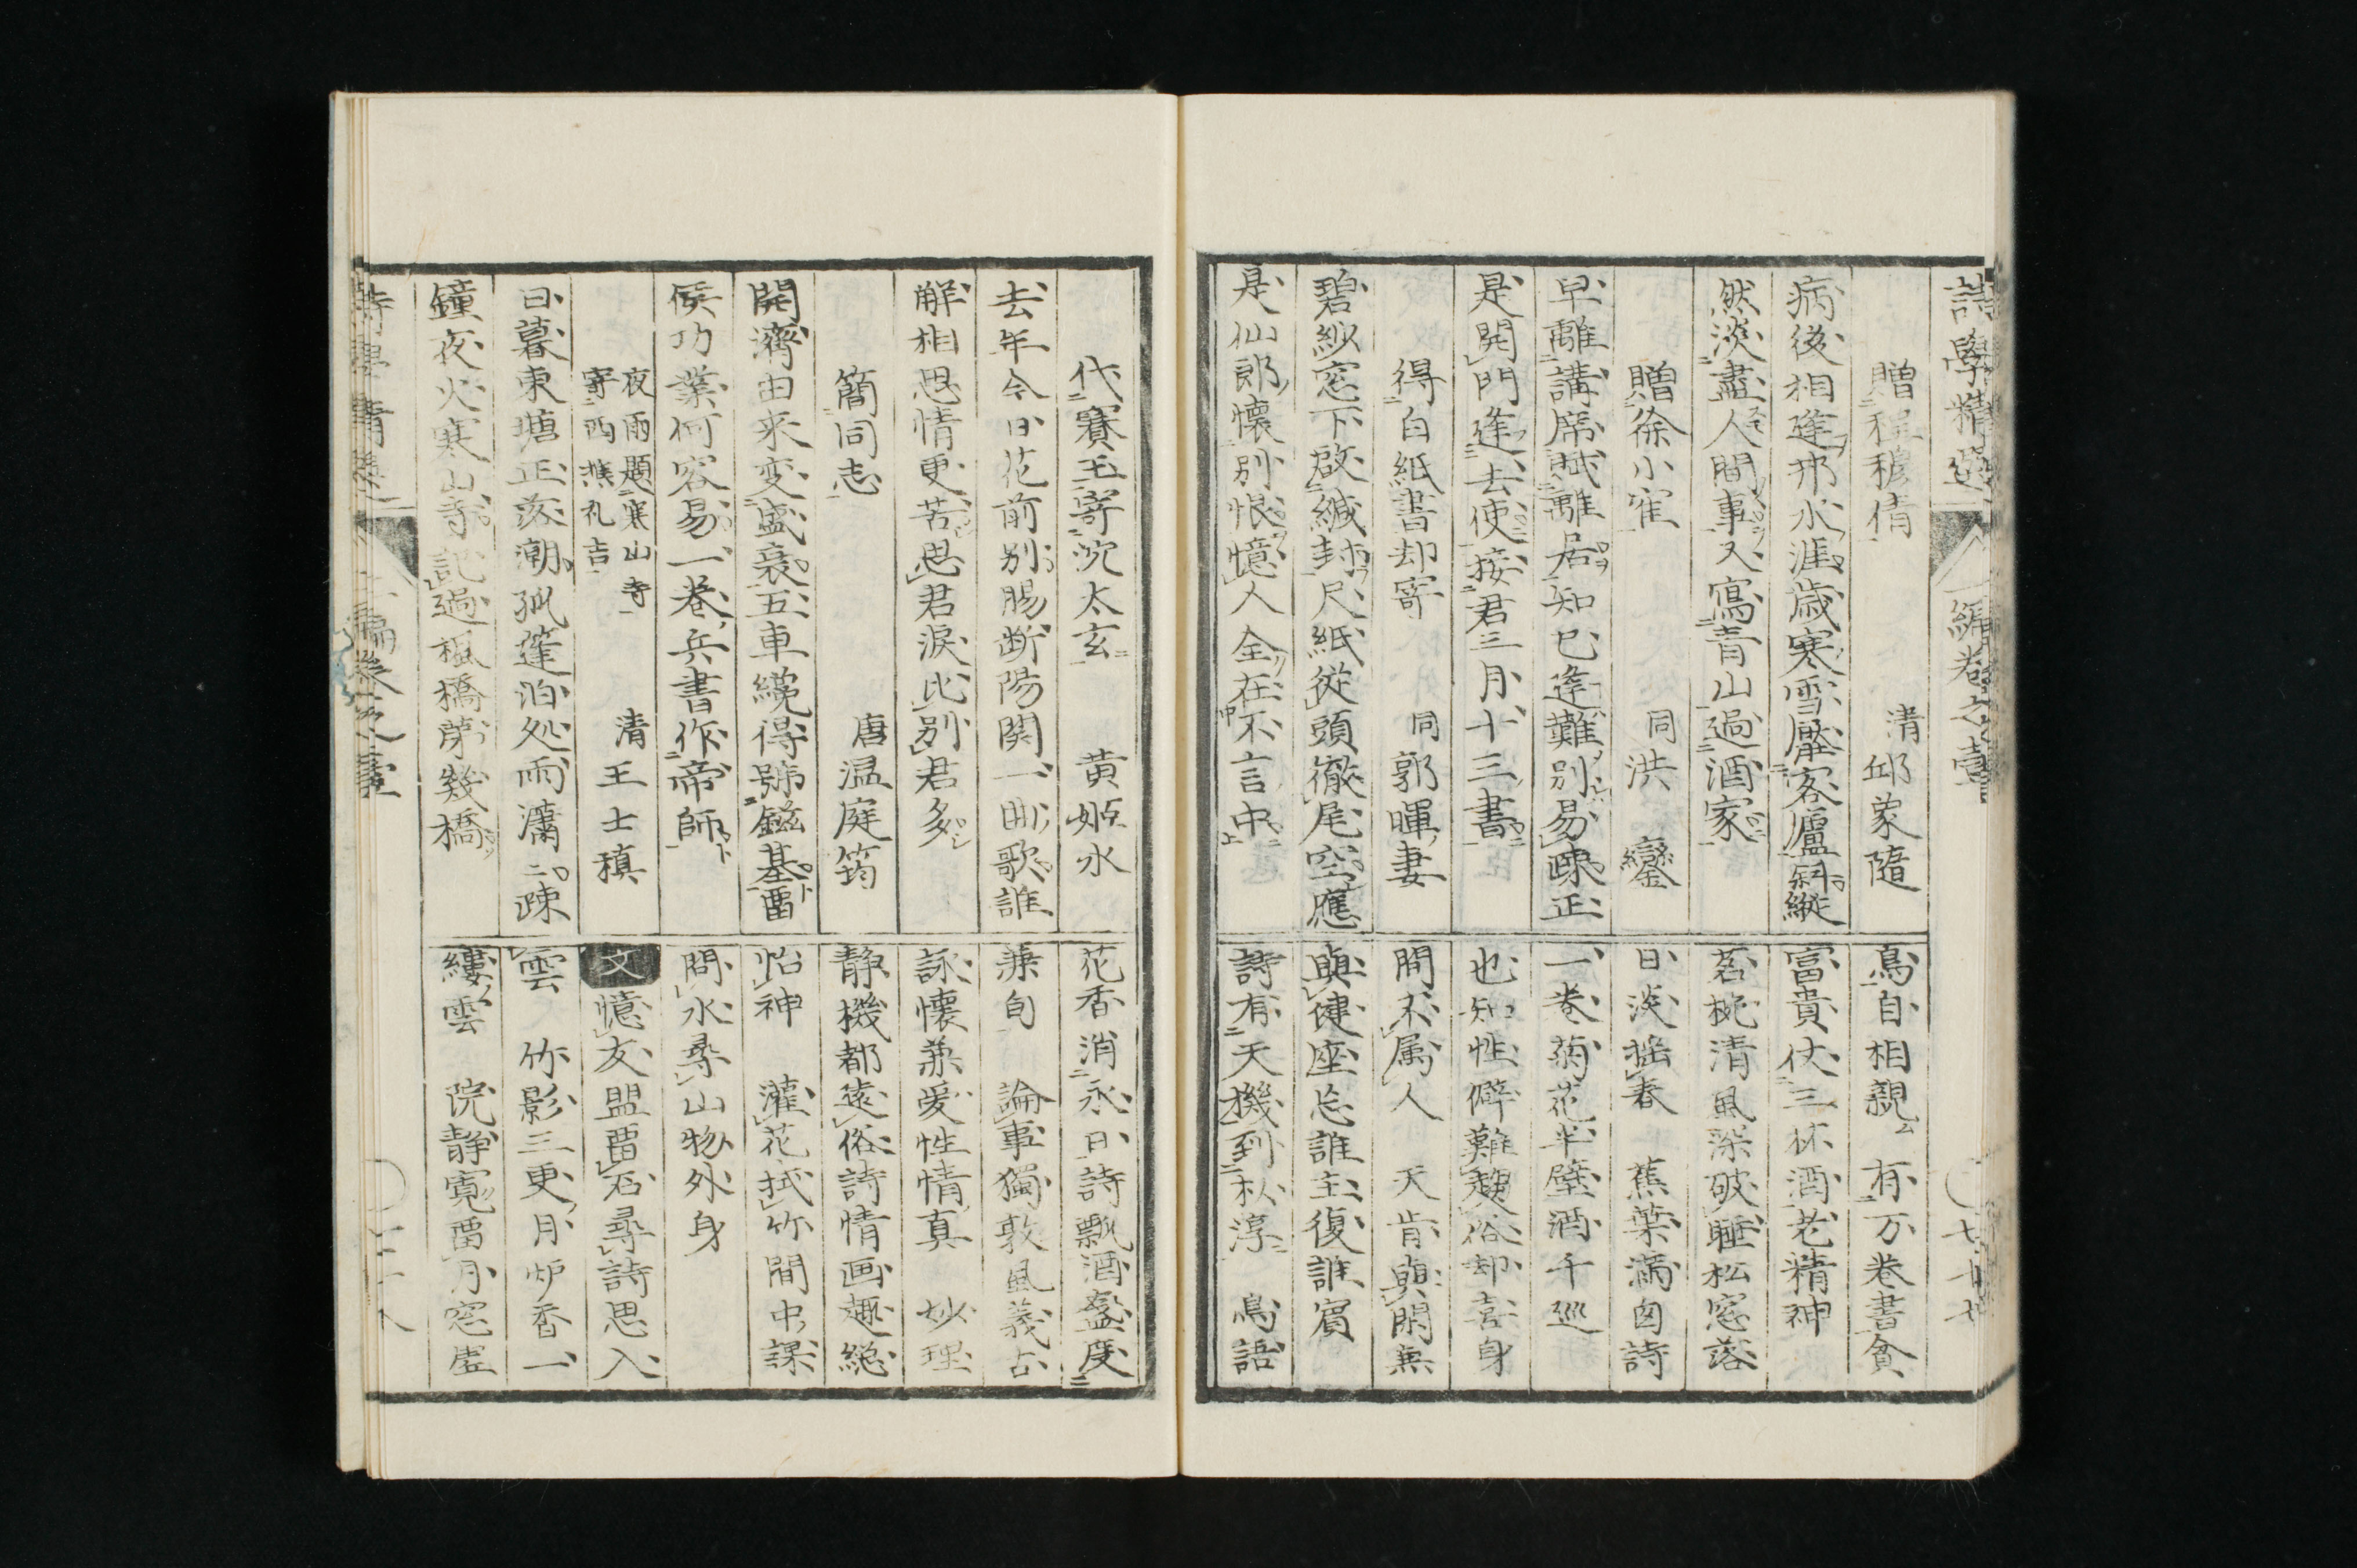 詩學精選 一編卷之壹 七十七
贈程穆倩 清 邱象隨
病後相逢邗水涯歳寒雪壓客廬斜縦
然淡盡人間事又寫青山過酒家
贈徐小隺 同 洪𨰻
早離講席賦離居知已逢難別易疎正
是開門逢去使接君三月十三書
得白紙書却寄 同 郭暉妻
碧紗窓下啟緘封尺紙從頭徹尾空應
是仙郎懷別恨憶人全在不言中
鳥自相親 有万卷書貧
富貴仗三杯酒老精神
茗椀清風深破睡松窓落
日淡揺春 蕉葉滿囱詩
一卷菊花半壁酒千巡
也知性僻難趨俗却喜身
閒不属人 天肯與閑無
與健座忘誰主復誰賓
詩有天機到秋淳 鳥語
代賽玉寄沈太玄 黄姬水
去年今日花前別腸断陽関一曲歌誰
觧相思情更苦思君淚比別君多
簡同志 唐 温庭筠
開濟由来変盛衰五車纔得號鎡基畱
侯功業何容易一巻兵書作帝師
夜雨題寒山寺
寄西樵礼吉 清 王士禛
日暮東塘正落潮孤蓬泊処雨瀟二疎
鐘夜火寒山寺記過楓橋第幾橋
花香消永日詩瓢酒盞度
兼旬 論事獨敦風義古
詠懷兼爱性情真 妙理
静機都遠俗詩情画趣総
怡神 灌花拭竹間中課
問水尋山物外身
文 憶友盟畱石尋詩思入
雲 竹影三更月炉香一
縷雲 院静寛畱月窓虚